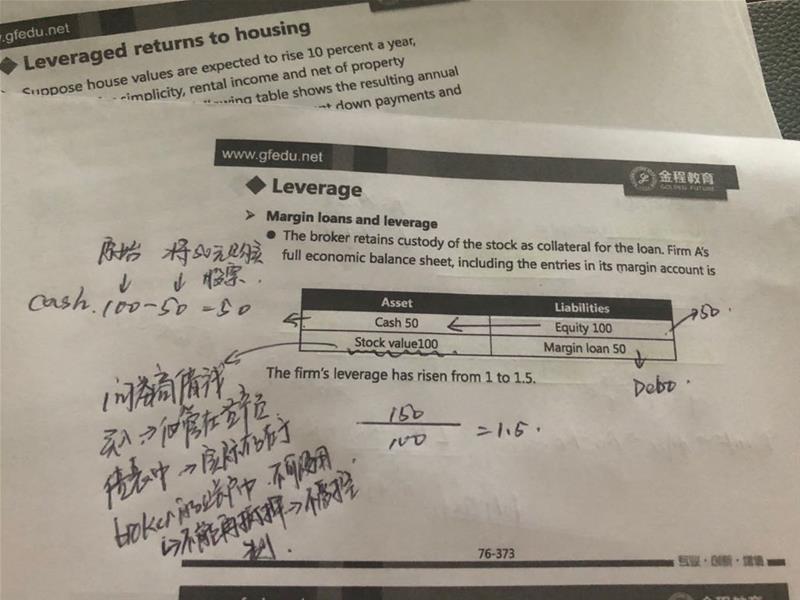 .gfedu.net
◆ Leveraged returns to housing
Suppose house values are expected to rise 10 percent a year,
simplicity, rental income and net of property
table shows the resulting annual
down payments and
www.gfedu.net
金程教育
GOLDEN FUTURE
◆ Leverage
➢ Margin loans and leverage
● The broker retains custody of the stock as collateral for the loan. Firm A's
full economic balance sheet, including the entries in its margin account is
原始 将50元
股票.
cash. 100-50=50
Asset Liabilities
Cash 50 Equity 100
50.
Stock value100 Margin loan 50
Debt.
The firm's leverage has risen from 1 to 1.5.
150
100
=1.5.
问券商借钱
买入→但写在资产负
债表中→实际存在于
broker的账户中.不可
→不能再
制.
76-373
专业·创新·增值